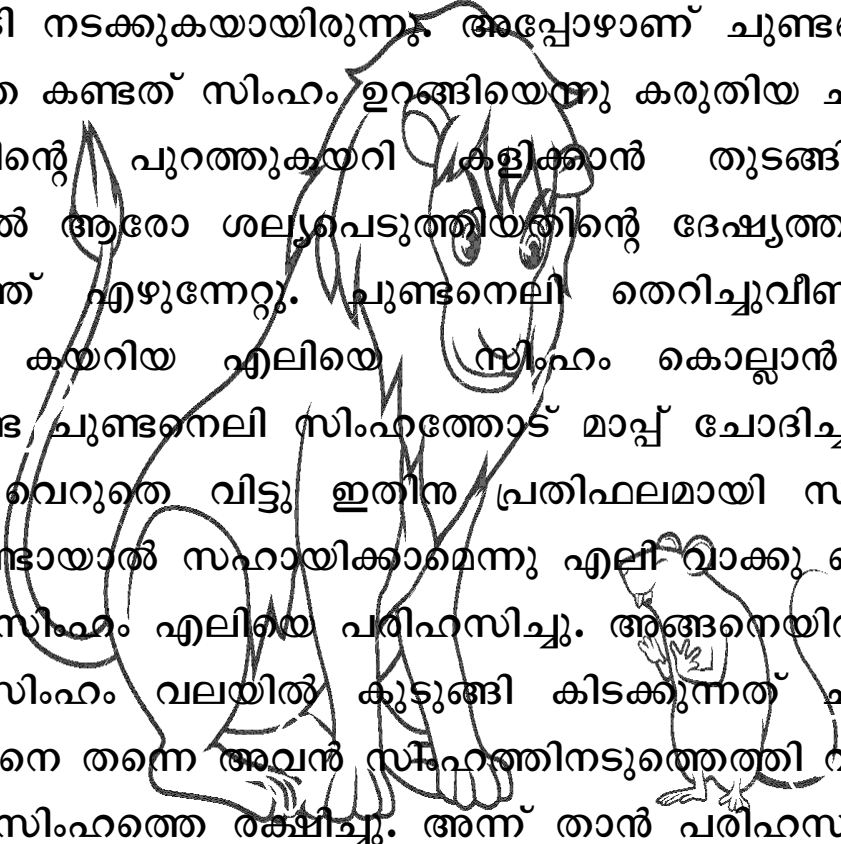 നടക്കുകയായിരുന്നു. അപ്പോഴാണ്
കണ്ടത് സിംഹം ഉറങ്ങിയെന്നു കരുതിയ
പുറത്തുകയറി കളിക്കാൻ തുടങ്ങി
ആരോ ശല്യപെടുത്തിയതിന്റെ
എഴുന്നേറ്റു. ചുണ്ടനെലി
കയറിയ എലിയെ സിംഹം കൊല്ലാൻ
ചുണ്ടനെലി സിംഹത്തോട് മാപ്പ്
വെറുതെ വിട്ടു ഇതിനു പ്രതിഫലമായി
സഹായിക്കാമെന്നു എലി വാക്കു
സിംഹം എലിയെ പരിഹസിച്ചു.
സിംഹം വലയിൽ കുടുങ്ങി കിടക്കുന്നത്
തന്നെ അവൻ സിംഹത്തിനടുത്തെത്തി
സിംഹത്തെ രക്ഷിച്ചു. അന്ന് താൻ